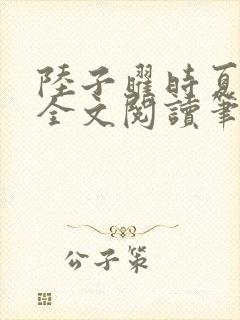 陸子曜時夏
全文閱讀筆
公子策